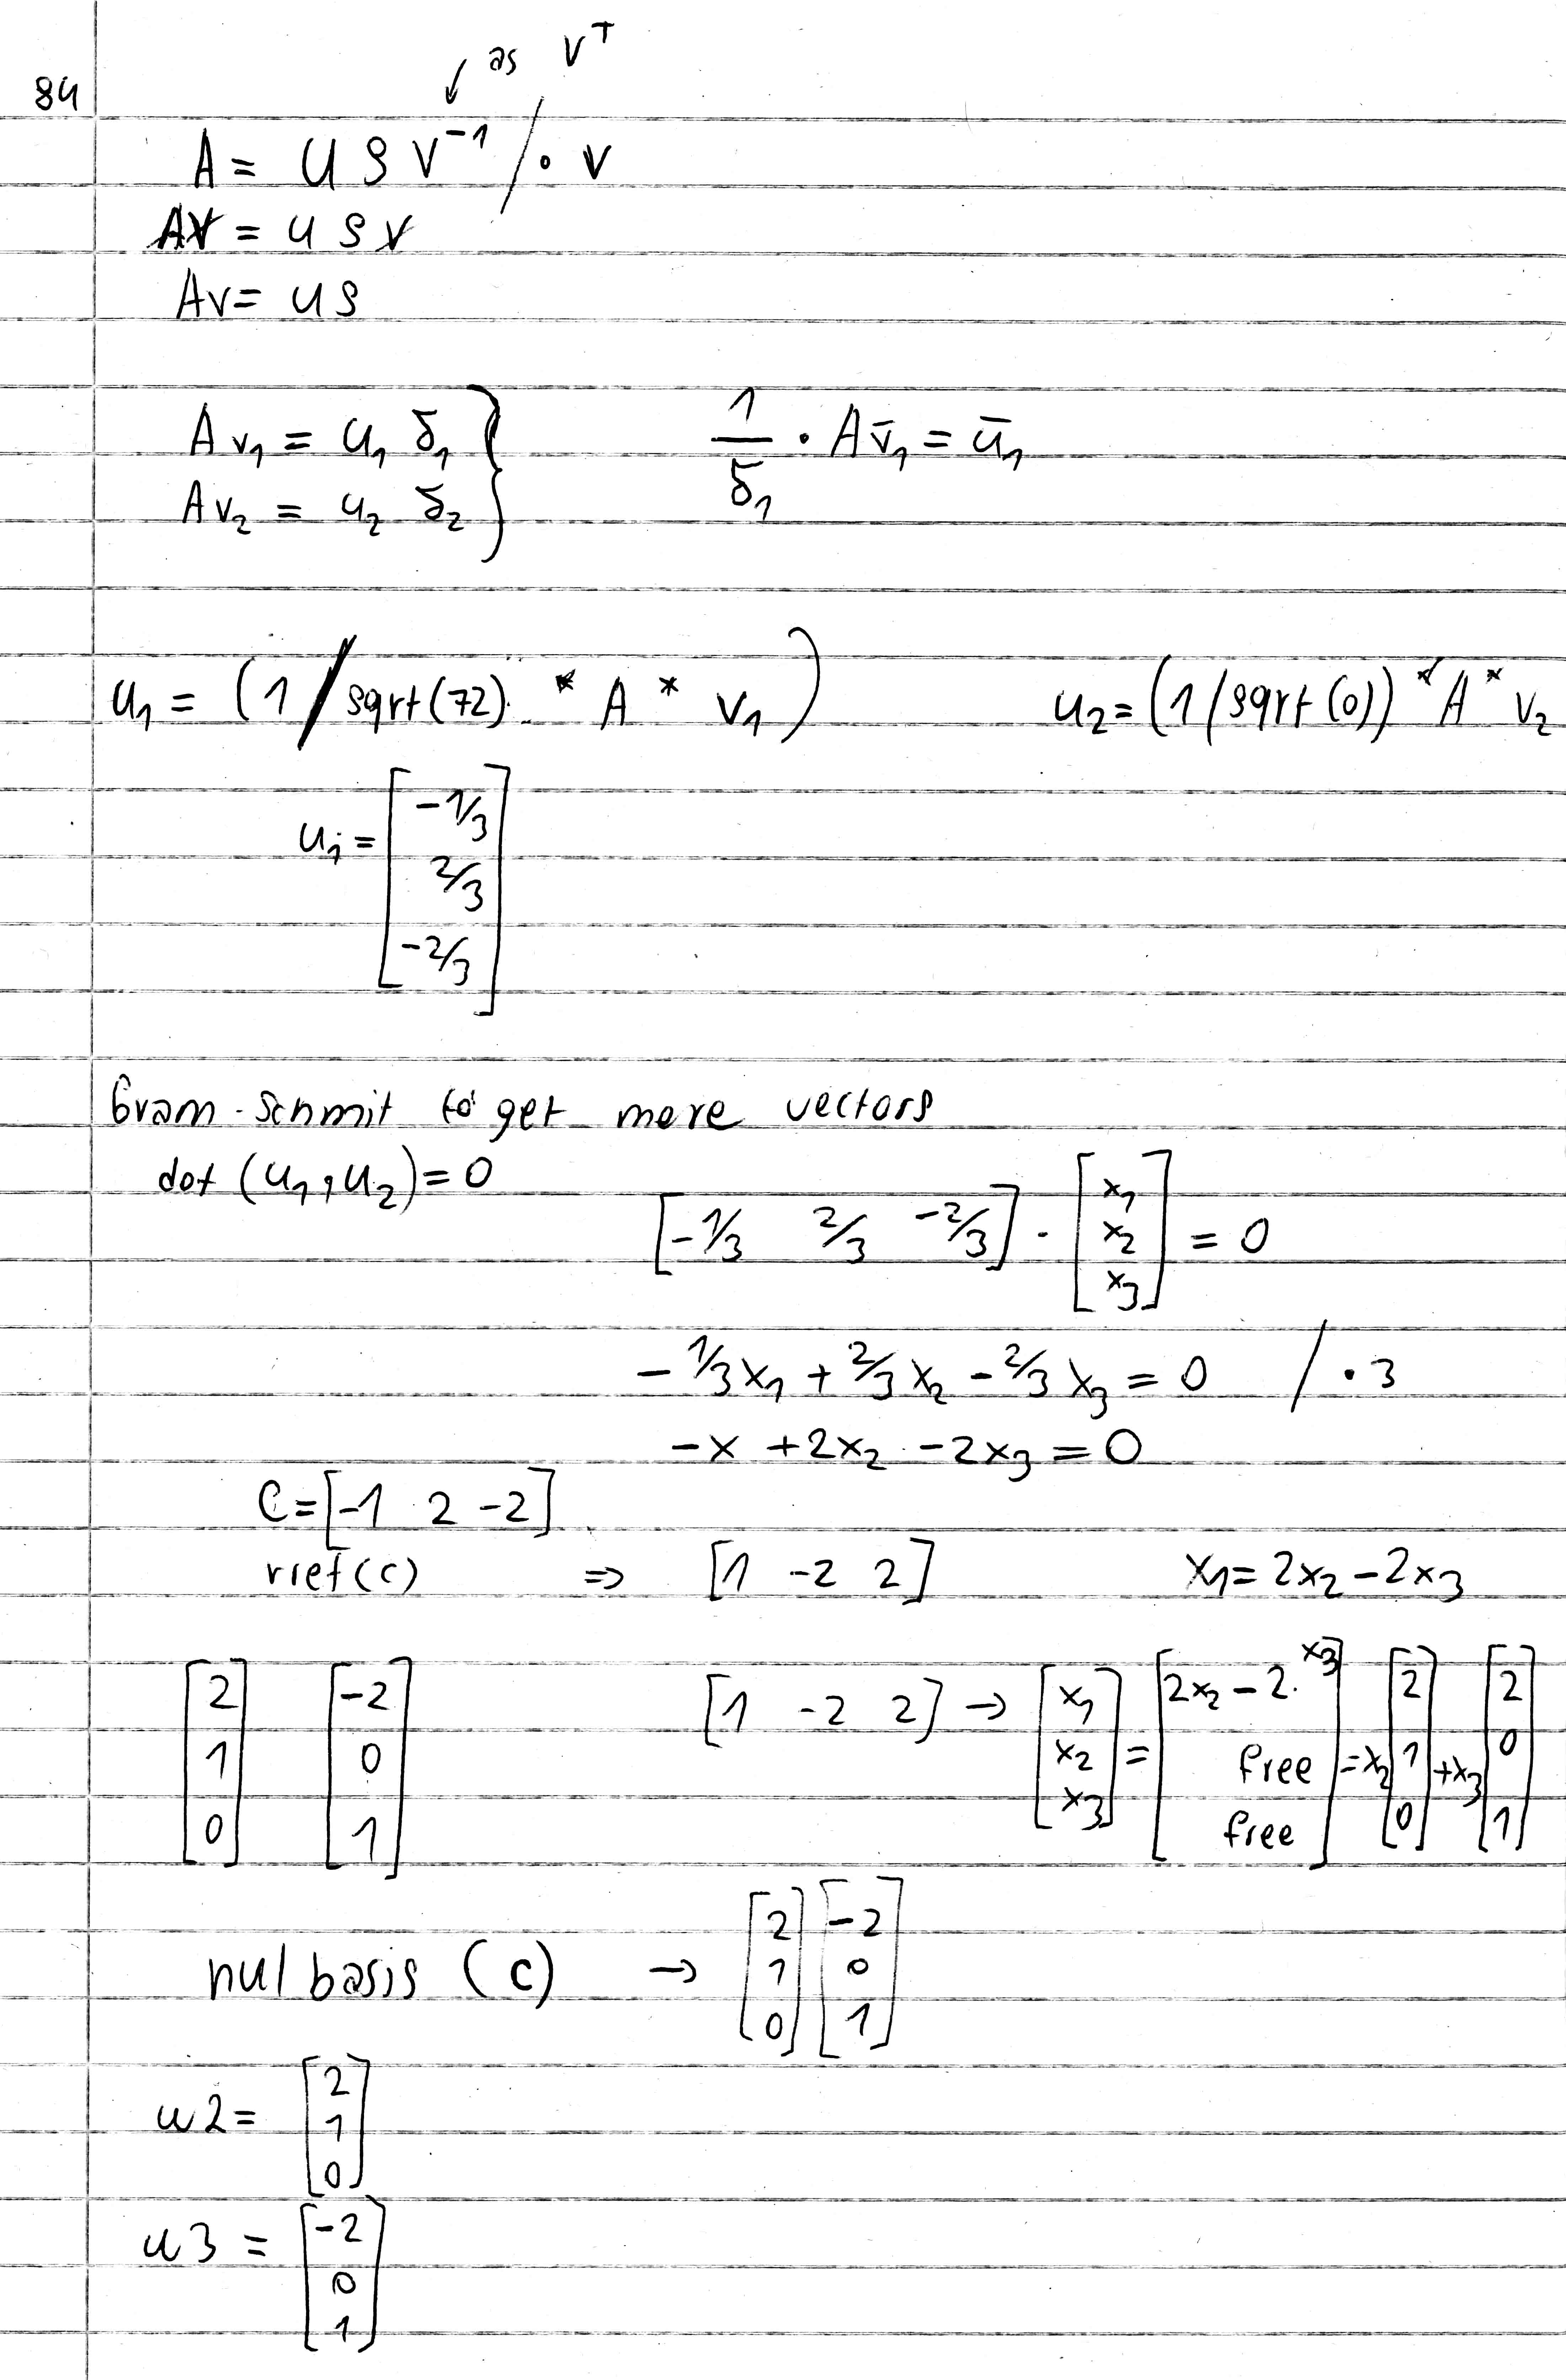 as V^T
84
A = U S V^-1 / · V
AV = U S V
AV = U S
A v₁ = u₁ δ₁
A v₂ = u₂ δ₂
1/δ₁ · A v̄₁ = ū₁
u₁ = (1/sqrt(72) * A * v₁)
u₂ = (1/sqrt(0)) * A * v₂
u₁ = [-1/3 2/3 -2/3]
Gram-Schmit to get more vectors
dot (u₁, u₂) = 0
[-1/3 2/3 -2/3] · [x₁ x₂ x₃] = 0
-1/3 x₁ + 2/3 x₂ - 2/3 x₃ = 0 / · 3
-x + 2x₂ - 2x₃ = 0
C = [-1 2 -2]
rref(c) ⇒ [1 -2 2] x₁ = 2x₂ - 2x₃
[2 1 0] [-2 0 1]
[1 -2 2] → [x₁ x₂ x₃] = [2x₂ - 2·x₃ free free] = x₂ [2 1 0] + x₃ [2 0 1]
nulbasis (c) → [2 1 0] [-2 0 1]
u2 = [2 1 0]
u3 = [-2 0 1]